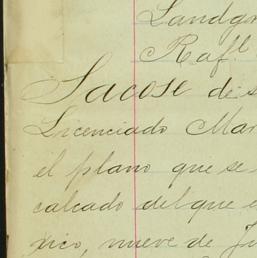 Landgr
Rafl
Sacose de s
Licenciado Mar
el plano que se
calcado del que e
xico, nueve de Ju